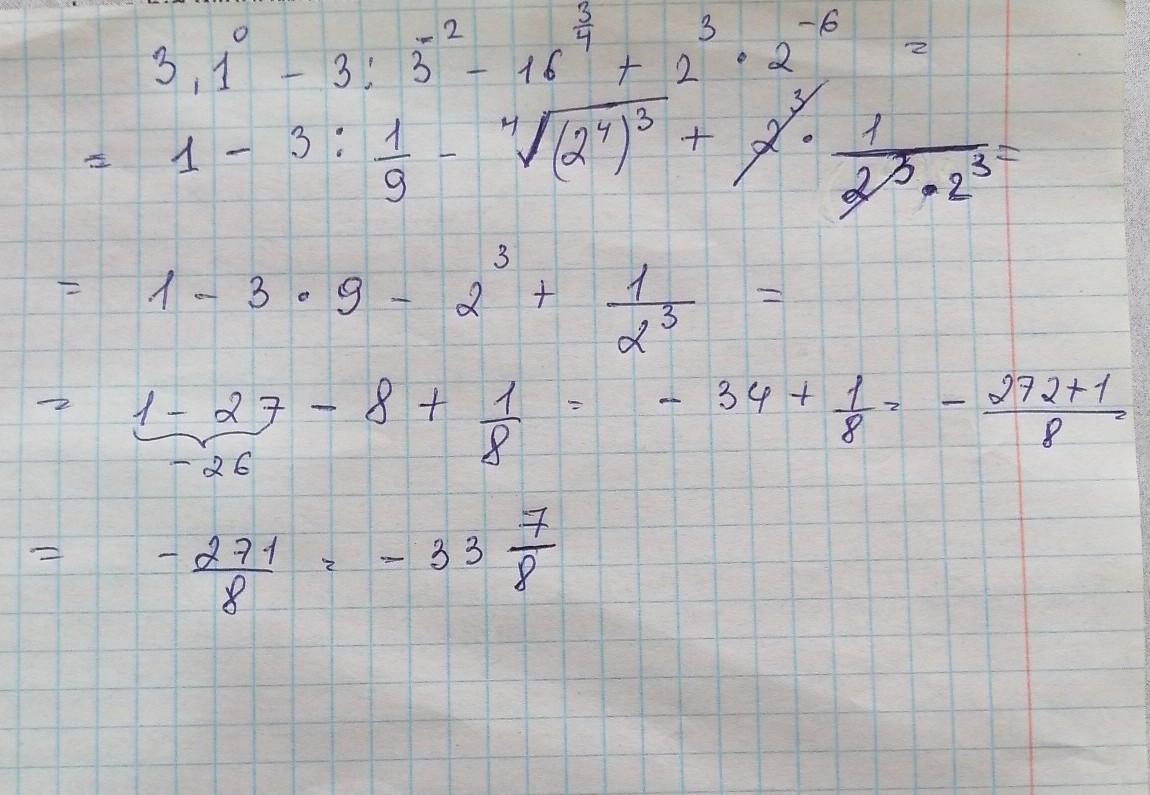 3,1⁰ - 3 : 3⁻² - 16^(3/4) + 2³ · 2⁻⁶ =
= 1 - 3 : 1/9 - ⁴√((2⁴)³) + 2³ · 1/(2³ · 2³) =
= 1 - 3 · 9 - 2³ + 1/2³ =
= 1 - 27 - 8 + 1/8 = - 34 + 1/8 = - (272+1)/8 =
-26
= -271/8 = - 33 7/8